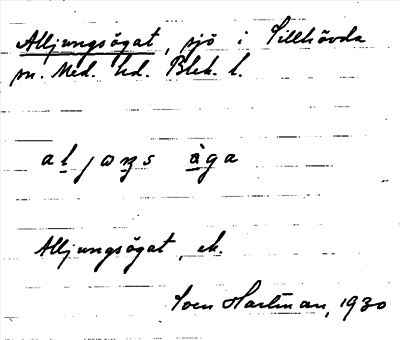 Alljungsögat, sjö i Tillhövda
sn. Med. hd. Blek. l.
al jωŋs åga
Alljungsögat, ek.
Sven Hartman, 1930